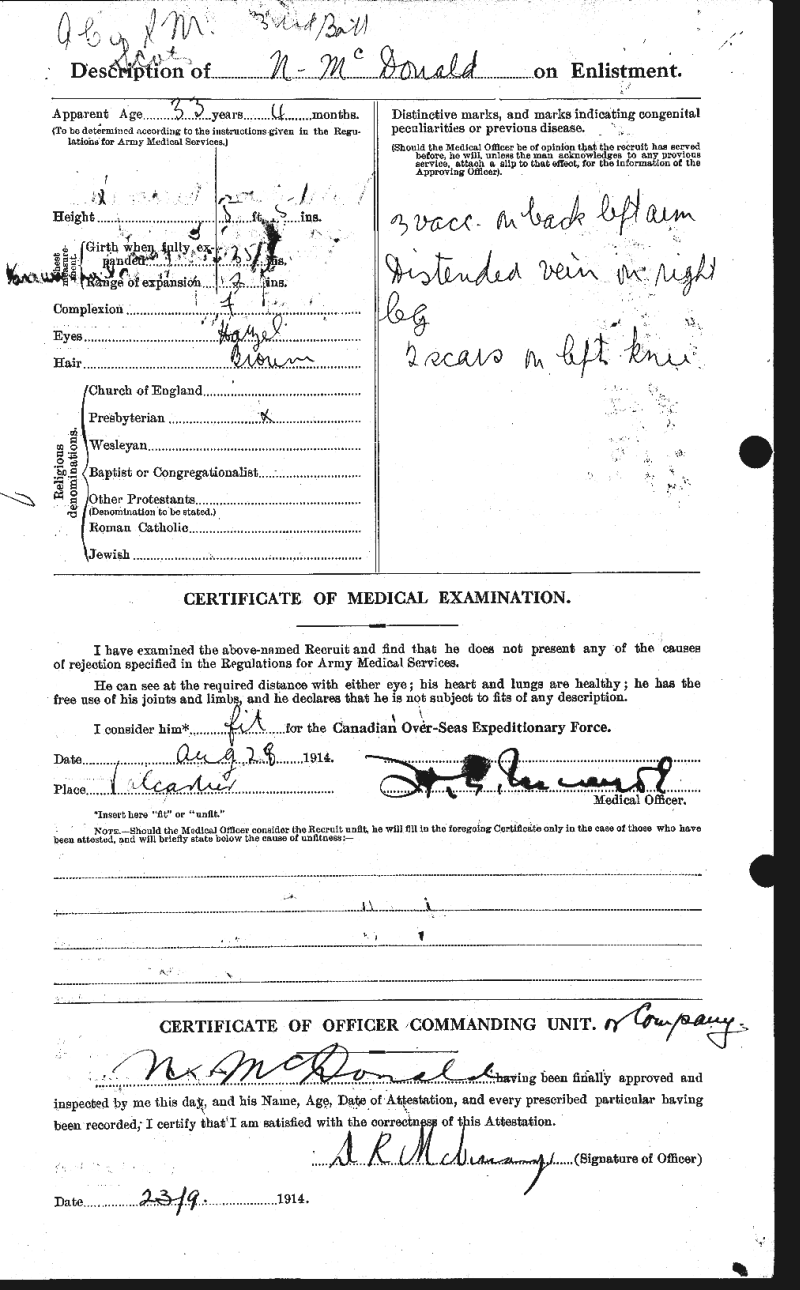 3rd/Batt
Description of N - McDonald on Enlistment.
Apparent Age 33 years 4 months.
(To be determined according to the instructions given in the Regu-
lations for Army Medical Services.)
Height 5 ft. 5 ins.
Chest measure-
ment.
Girth when fully ex-
panded 35 ins.
Range of expansion 2 ins.
Complexion f
Eyes Hazel
Hair Brown
Religious
denominations.
Church of England
Presbyterian x
Wesleyan
Baptist or Congregationalist
Other Protestants
(Denomination to be stated.)
Roman Catholic
Jewish
Distinctive marks, and marks indicating congenital
peculiarities or previous disease.
(Should the Medical Officer be of opinion that the recruit has served
before, he will, unless the man acknowledges to any previous
service, attach a slip to that effect, for the information of the
Approving Officer).
3 vacc. on back left arm
Distended vein on right
leg
2 scars on left knee
CERTIFICATE OF MEDICAL EXAMINATION.
I have examined the above-named Recruit and find that he does not present any of the causes
of rejection specified in the Regulations for Army Medical Services.
He can see at the required distance with either eye; his heart and lungs are healthy; he has the
free use of his joints and limbs, and he declares that he is not subject to fits of any description.
I consider him* fit for the Canadian Over-Seas Expeditionary Force.
Date Aug 28 1914.
Place Valcartier
Medical Officer.
*Insert here "fit" or "unfit."
NOTE.—Should the Medical Officer consider the Recruit unfit, he will fill in the foregoing Certificate only in the case of those who have
been attested, and will briefly state below the cause of unfitness:—
CERTIFICATE OF OFFICER COMMANDING UNIT. or Company.
N McDonald having been finally approved and
inspected by me this day, and his Name, Age, Date of Attestation, and every prescribed particular having
been recorded, I certify that I am satisfied with the correctness of this Attestation.
(Signature of Officer)
Date 23/9. 1914.